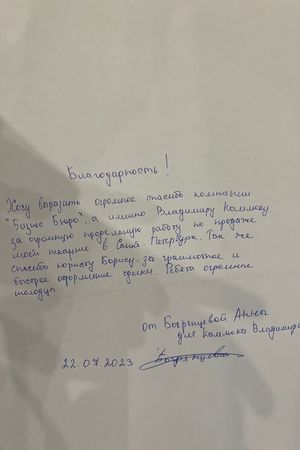 Благодарность!
Хочу выразить огромное спасибо компании
"Бизнес Бюро", а именно Владимиру Каллюку
за огромную проделаную работу по продаже
моей пекарни в Санкт. Петербурге. Так же
спасибо юристу Борису, за грамотное и
быстрое оформление сделки. Ребята огромные
молодцы.
от Бояринцевой Анны
для Владимира
22.07.2023